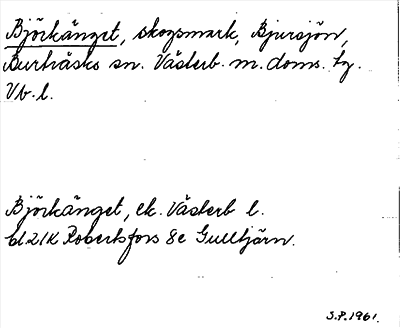 Björkänget, skogsmark, Bjursjön,
Burträsks sn. Västerb. m. doms. tg.
Vb. l.
Björkänget, ek. Västerb l.
bl 21K Robertsfors 8e Gulltjärn.
S.P. 1961.